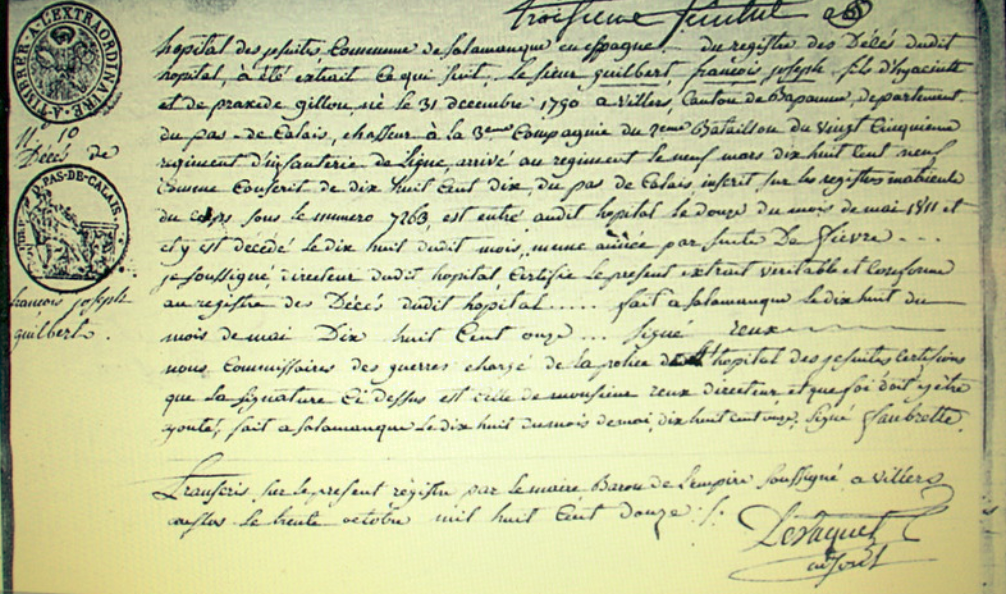 troisieme feuillet
A TIMBRER A L'EXTRAORDINAIRE
hopital des jesuites Commune de Salamanque en espagne. Du registre des Décés dudit
hopital, à été extrait ce qui suit. Le sieur guilbert, françois joseph, fils d'hyacinte
et de praxede gillou, né le 31 decembre 1790 a Villers, Canton de Bapaume, departement
N° 10
Décés de
du pas-de Calais, chasseur à la 3eme Compagnie du 2eme Bataillon du Vingt Cinquieme
regiment d'infanterie de Ligne, arrivé au regiment le neuf mars dix huit Cent neuf
PAS-DE-CALAIS
comme Conscrit de dix huit Cent dix, du pas de Calais, inscrit sur les registres matricule
du corps sous le numero 7263, est entré audit hopital le douze du mois de mai 1811 et
et y est décédé le dix huit dudit mois, meme année par suite De fievre ...
je soussigné, directeur dudit hopital, Certifie le présent extrait veritable et Conforme
françois joseph
guilbert.
au registre des Décés dudit hopital ..... fait a Salamanque le dix huit du
mois de mai Dix huit Cent onze ... Signé reux
nous Commissaires des guerres chargé de la police de l'hopital des jesuites Certifions
que la Signature Ci dessus est celle de monsieur reux directeur, et que foi doit y être
ajouté, fait a Salamanque le dix huit du mois de mai, dix huit cent onze, Signé
Transcris sur le present régistre par le maire Baron de l'empire Soussigné a Villers
le trente octobre mil huit Cent douze ./.